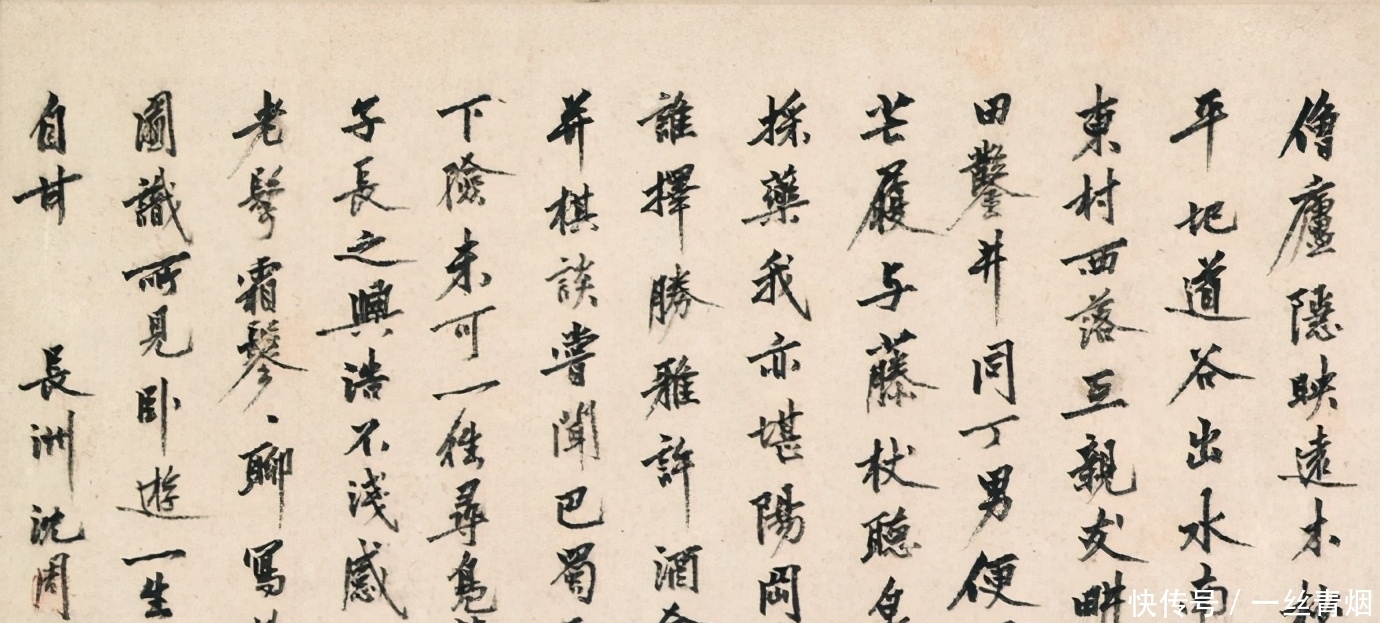 僧廬隱映遠木
平圯道谷出水南
東村西落互親友畊
田鑿井同丁男便
芒屨与藤杖聽泉
採藥我亦堪陽岡
誰擇勝雅許酒
并棋談嘗聞巴蜀
下險未可一往尋鳧
子長之興浩不淺感
老髩霜鬖〻聊寫
圖識所見卧遊一生
自甘 長洲沈周
快传号 / 一丝青烟